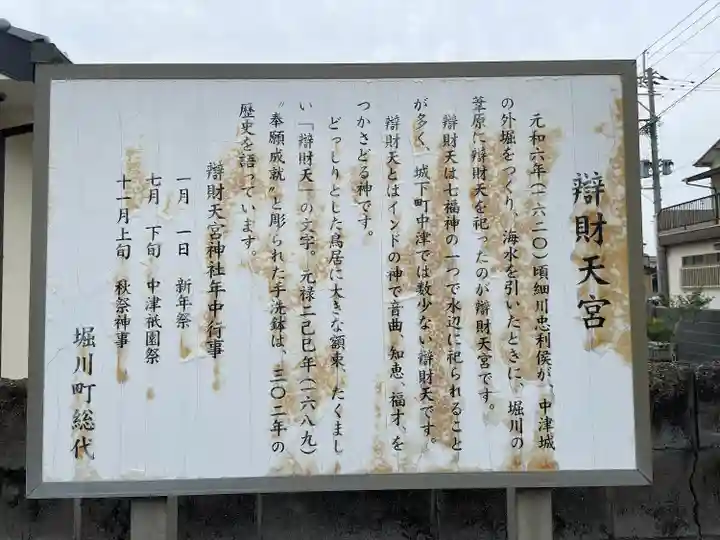 辯財天宮
元和六年(一六二〇)頃細川忠利侯が、中津城
の外堀をつくり、海水を引いたときに、堀川の
葦原に辯財天を祀ったのが辯財天宮です。
辯財天は七福神の一つで水辺に祀られること
が多く、城下町中津では数少ない辯財天です。
辯財天とはインドの神で音曲、知恵、福才、を
つかさどる神です。
どっしりとした鳥居に大きな額束、たくまし
い「辯財天」の文字。元禄二己巳年(一六八九)
〝奉願成就〟と彫られた手洗鉢は、三〇二年の
歴史を語っています。
辯財天宮神社年中行事
一月 一日 新年祭
七月 下旬 中津祇園祭
十一月上旬 秋祭神事
堀川町総代